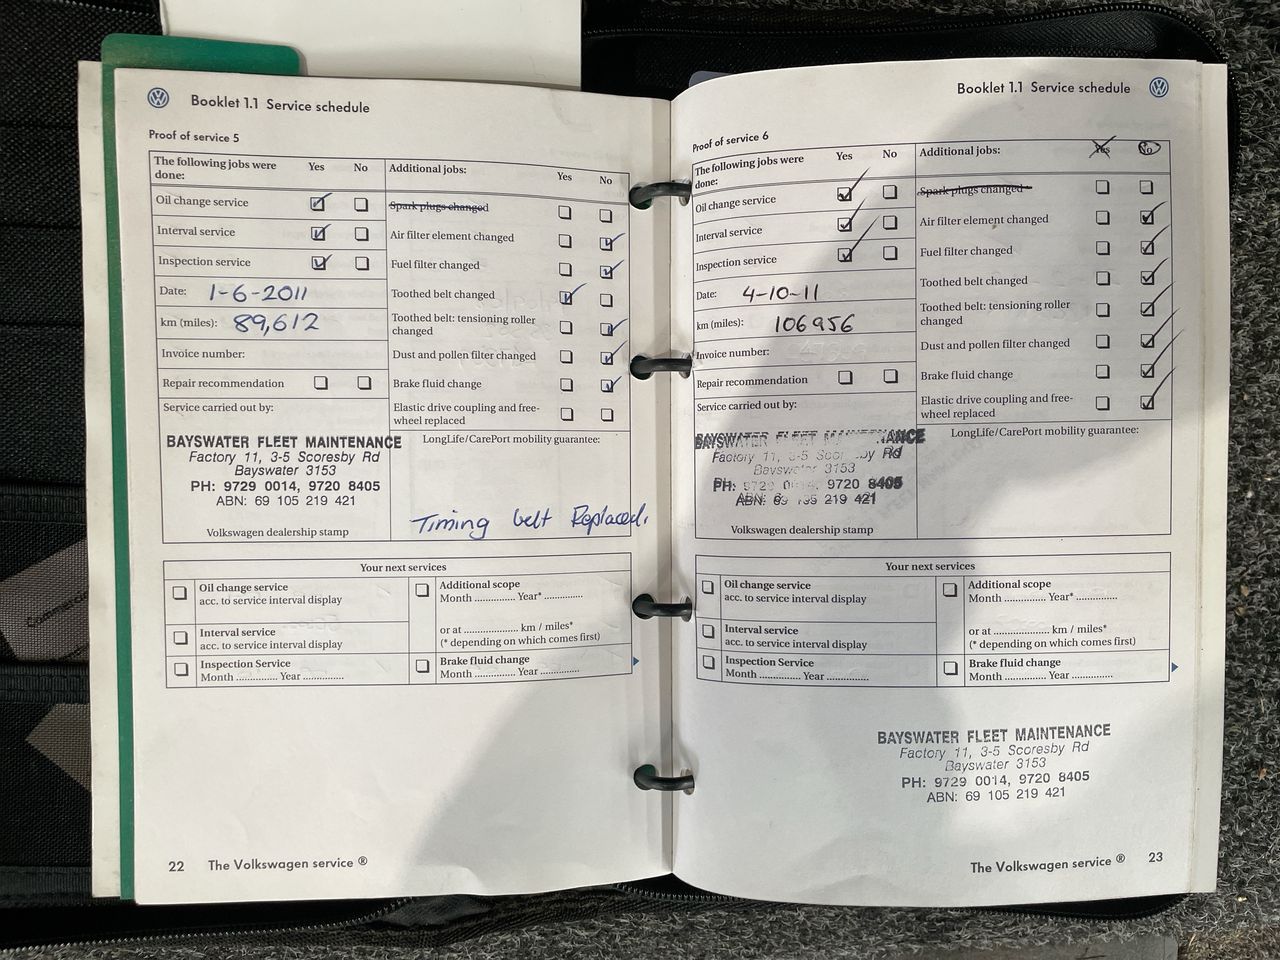 Booklet 1.1 Service schedule
Proof of service 5
The following jobs were done: Yes No
Oil change service
Interval service
Inspection service
Date: 1-6-2011
km (miles): 89,612
Invoice number:
Repair recommendation
Service carried out by:
BAYSWATER FLEET MAINTENANCE
Factory 11, 3-5 Scoresby Rd
Bayswater 3153
PH: 9729 0014, 9720 8405
ABN: 69 105 219 421
Volkswagen dealership stamp
Additional jobs: Yes No
Spark plugs changed
Air filter element changed
Fuel filter changed
Toothed belt changed
Toothed belt: tensioning roller
changed
Dust and pollen filter changed
Brake fluid change
Elastic drive coupling and free-
wheel replaced
LongLife/CarePort mobility guarantee:
Timing belt Replaced.
Your next services
Oil change service
acc. to service interval display
Interval service
acc. to service interval display
Inspection Service
Month .............. Year ..............
Additional scope
Month .............. Year* ..............
or at .................... km / miles*
(* depending on which comes first)
Brake fluid change
Month .............. Year ..............
22 The Volkswagen service ®
Booklet 1.1 Service schedule
Proof of service 6
The following jobs were
done: Yes No
Oil change service
Interval service
Inspection service
Date: 4-10-11
km (miles): 106956
Invoice number:
Repair recommendation
Service carried out by:
BAYSWATER FLEET MAINTENANCE
Factory 11, 3-5 Scoresby Rd
Bayswater 3153
PH: 9729 0014, 9720 8405
ABN: 69 105 219 421
Volkswagen dealership stamp
Additional jobs: Yes No
Spark plugs changed
Air filter element changed
Fuel filter changed
Toothed belt changed
Toothed belt: tensioning roller
changed
Dust and pollen filter changed
Brake fluid change
Elastic drive coupling and free-
wheel replaced
LongLife/CarePort mobility guarantee:
Your next services
Oil change service
acc. to service interval display
Interval service
acc. to service interval display
Inspection Service
Month .............. Year ..............
Additional scope
Month .............. Year* ..............
or at .................... km / miles*
(* depending on which comes first)
Brake fluid change
Month .............. Year ..............
BAYSWATER FLEET MAINTENANCE
Factory 11, 3-5 Scoresby Rd
Bayswater 3153
PH: 9729 0014, 9720 8405
ABN: 69 105 219 421
The Volkswagen service ® 23